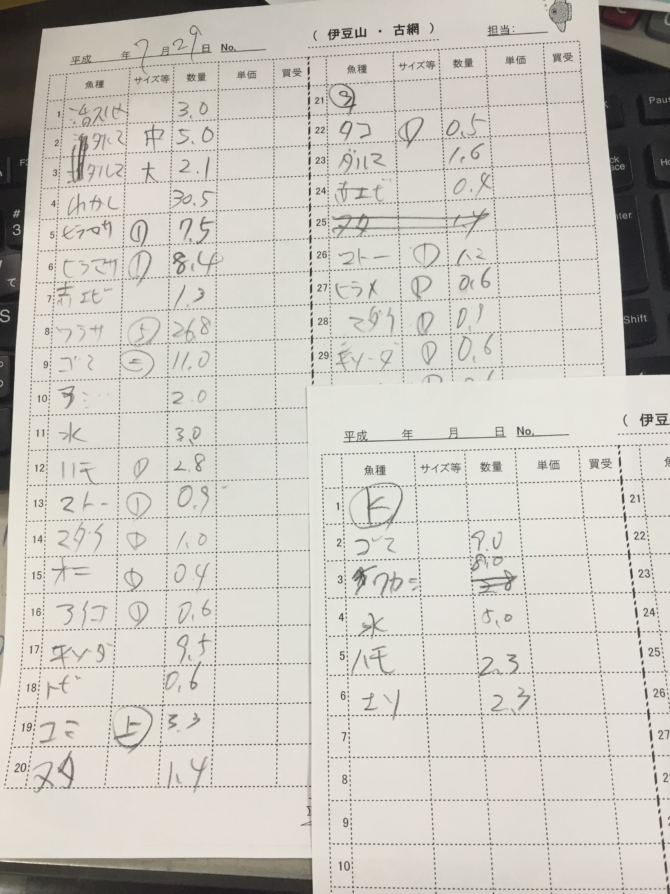 （ 伊豆山 ・ 古網 ）
平成 年 7 月 29 日 No. 担当：
魚種 サイズ等 数量 単価 買受
1 3.0
2 中 5.0
3 大 2.1
4 わかし 30.5
5 ヒラマサ ① 7.5
6 ヒラマサ ① 8.4
7 赤エビ 1.3
8 ワラサ ⑤ 26.8
9 ゴマ ㊁ 11.0
10 2.0
11 水 3.0
12 ハモ ① 2.8
13 マトー ① 0.9
14 マダイ ① 1.0
15 オニ ① 0.4
16 アイゴ ① 0.6
17 平ソーダ 9.5
18 トビ 0.6
19 ㊤ 3.3
20 1.4
魚種 サイズ等 数量 単価 買受
21
22 タコ ① 0.5
23 ダルマ 1.6
24 赤エビ 0.4
25 1.4
26 マトー ① 1.2
27 ヒラメ ① 0.6
28 マダイ ①
29 平ソーダ ① 0.6
（ 伊豆
平成 年 月 日 No.
魚種 サイズ等 数量 単価 買受
1
2 ゴマ 9.0
3 8.0
4 水 5.0
5 ハモ 2.3
6 エソ 2.3
7
8
9
10
21
22
23
24
25
26
27
28
29